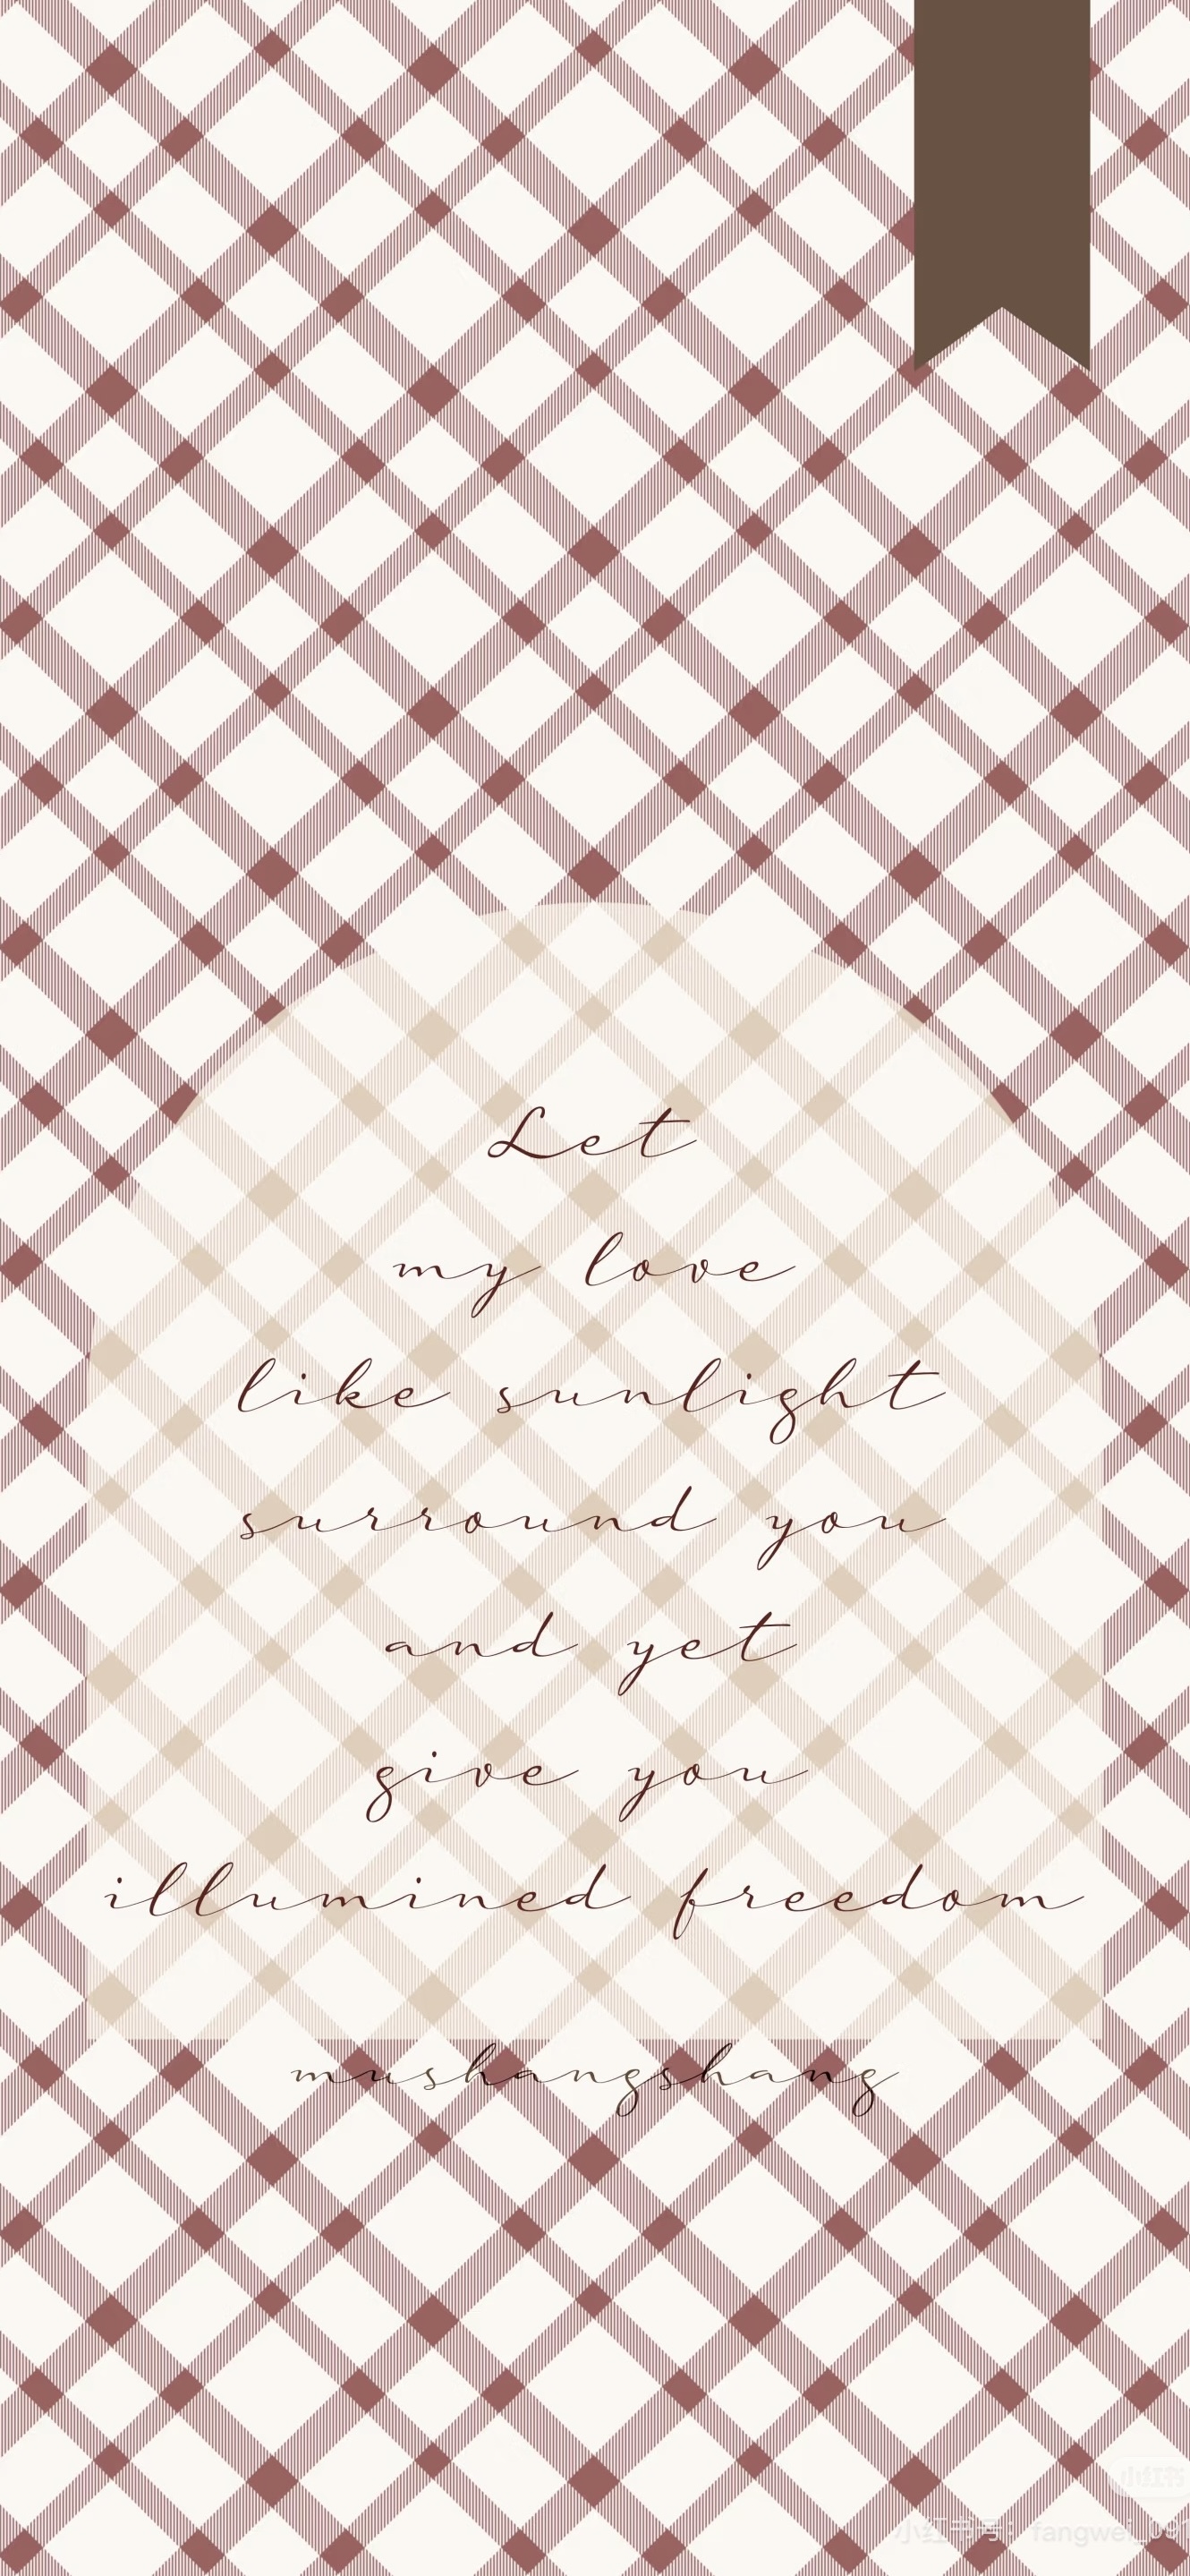 Let
my love
like sunlight
surround you
and yet
give you
illumined freedom
mushangshang
小红书
小红书号：fangwei_091